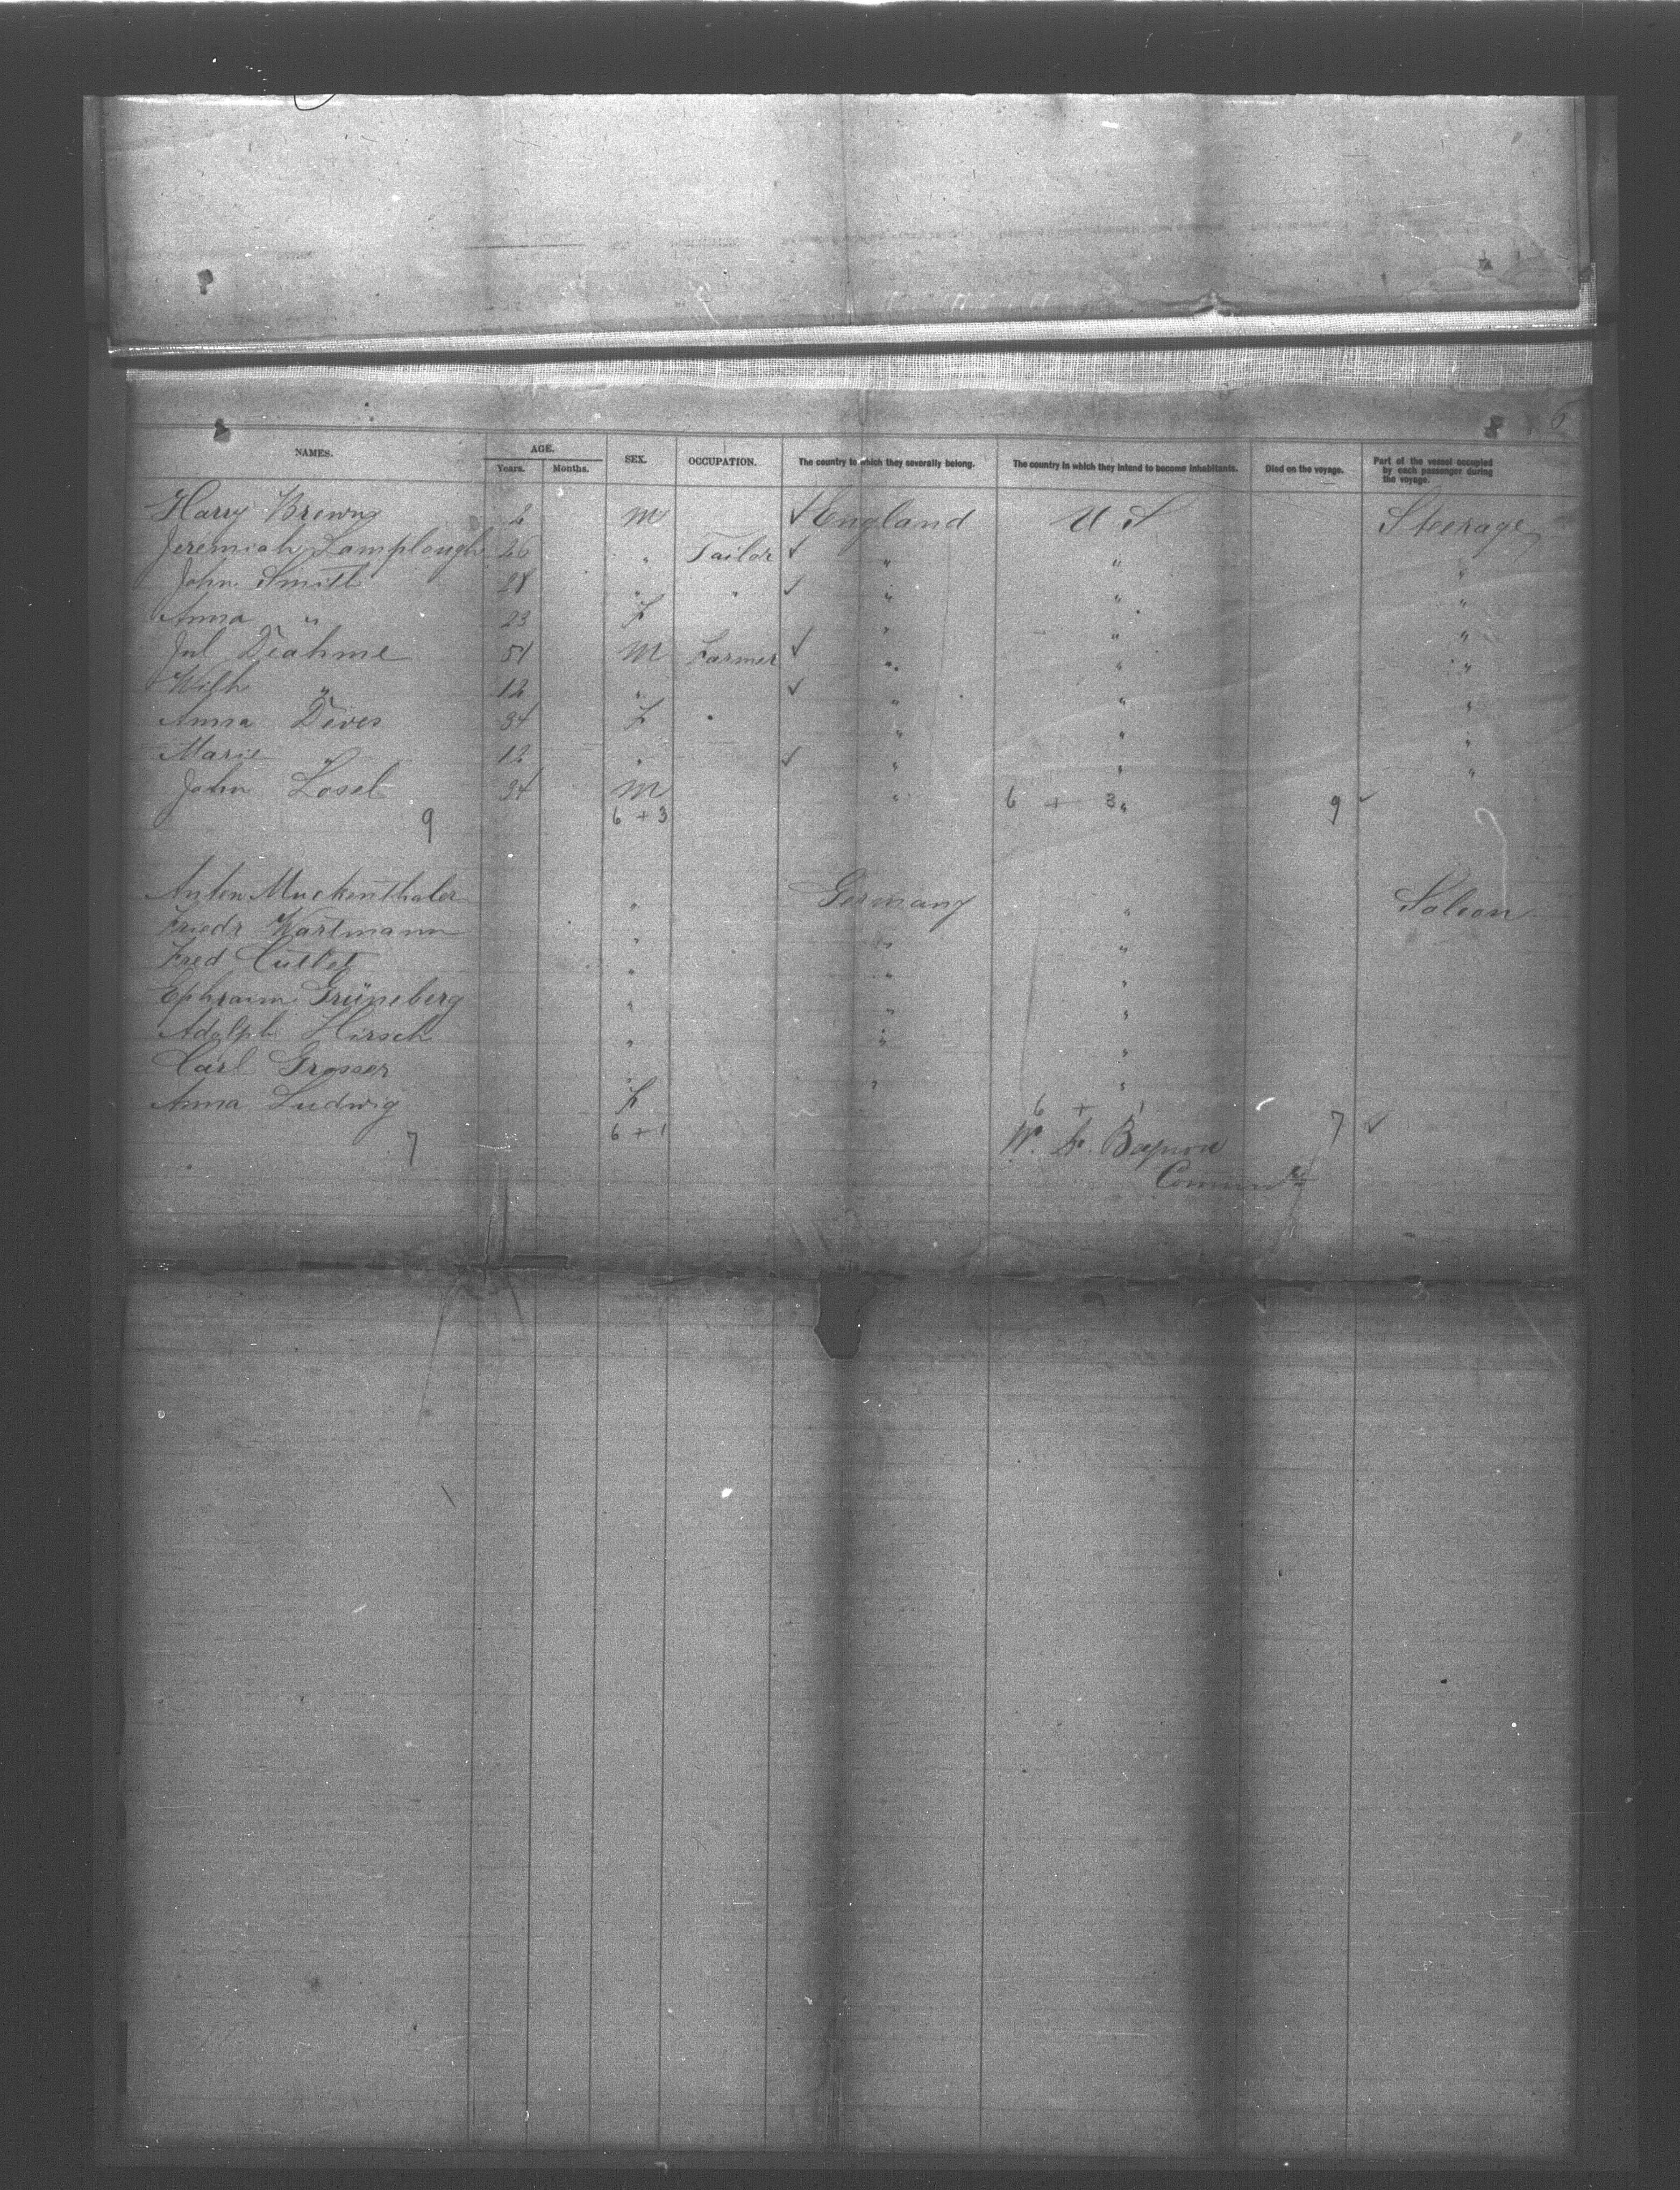 6
NAMES. AGE. SEX. OCCUPATION. The country to which they severally belong. The country in which they intend to become inhabitants. Died on the voyage. Part of the vessel occupied by each passenger during the voyage.
Years. Months.
Harry 2 m ✓ England U S Steerage
Jeremiah Lamplough 26 " Tailor ✓ " " "
John Smith 28 " " ✓ " " "
Anna " 23 F " " "
Jul 51 M Farmer ✓ " " "
Wilh " 12 " ✓ " " "
Anna 34 F " " "
Marie " 12 " ✓ " " "
John 34 M " "
9 6 + 3 6 + 3 9 ✓
Anton Muckenthaler " Germany " Saloon
Friedr Wartmann " " "
Fred " " "
Ephraim Grüneberg " " "
Adolph Hirsch " " "
Carl Grosser " " "
Anna Ludwig F
7 6 + 1 6 + 1 7 ✓
W. F.